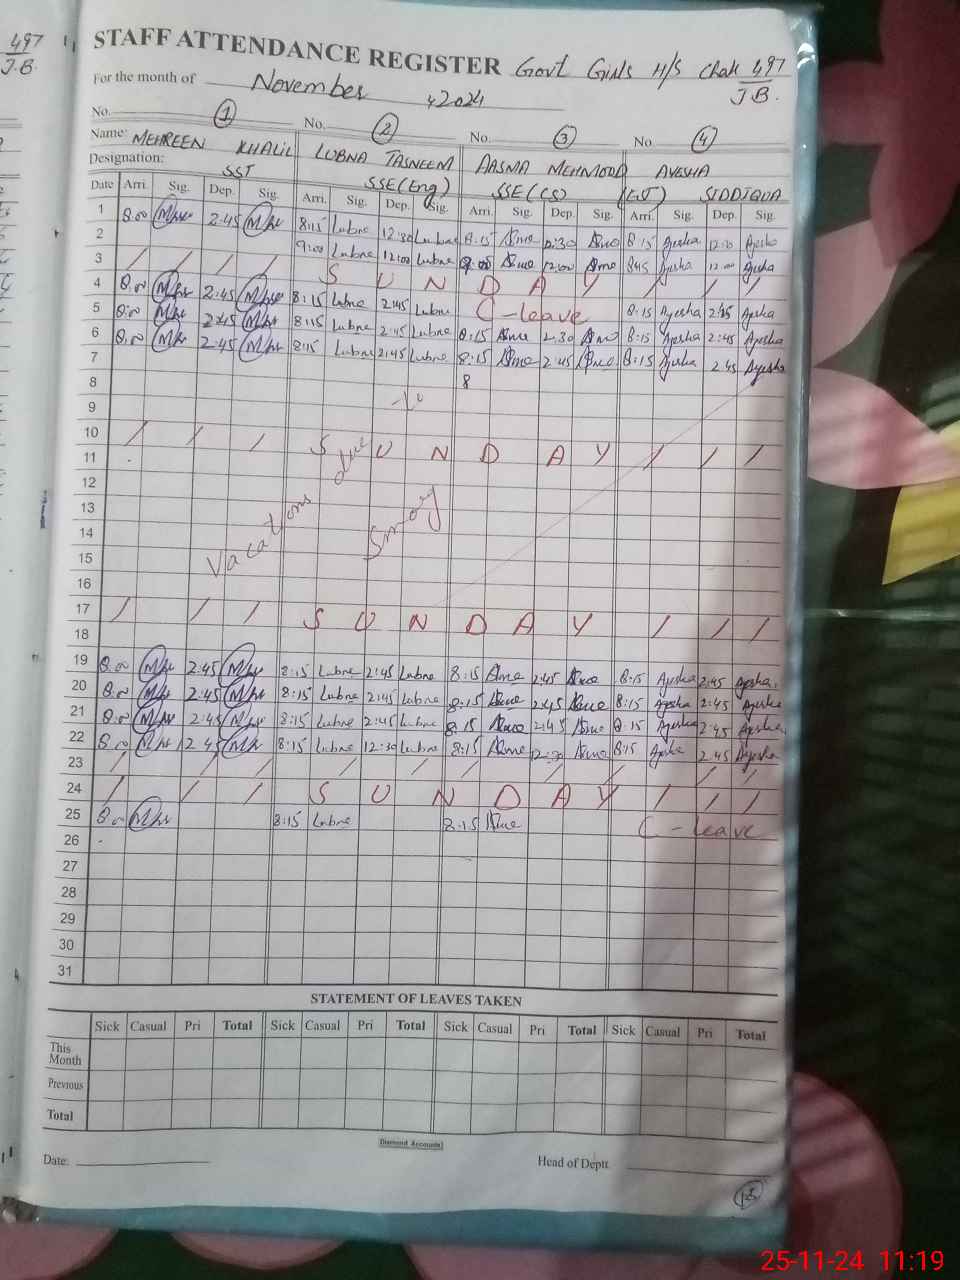 497
J.B.
STAFF ATTENDANCE REGISTER Govt Girls H/S Chak 497
J.B.
For the month of November 2024
No. 1 No. 2 No. 3 No. 4
Name: MEHREEN KHALIL LUBNA TASNEEM AASMA MEHMOOD AYESHA
Designation: SST SSE(Eng) SSE(CS) (EST) SIDDIQUA
Date Arri. Sig. Dep. Sig. Arri. Sig. Dep. Sig. Arri. Sig. Dep. Sig. Arri. Sig. Dep. Sig.
1 8.00 2:45 8:15 Lubna 12:30 Lubna 8.15 Asma 12:30 Asma 8:15 Ayesha 12:30 Ayesha
2 9:00 Lubna 12:00 Lubna Asma 12:00 Asma 8:45 Ayesha 12:00 Ayesha
3 / / / / S U N D A Y / / / /
4 8.00 2:45 8:15 Lubna 2:45 Lubna C-leave 8:15 Ayesha 2:45 Ayesha
5 8:00 2:45 8:15 Lubna 2:45 Lubna 8:15 Asma 2:30 Asma 8:15 Ayesha 2:45 Ayesha
6 8.00 2:45 8:15 Lubna 2:45 Lubna 8:15 Asma 2:45 Asma 8:15 Ayesha 2:45 Ayesha
7
8 8
9
10 / / / S U N D A Y / / /
11
12 Vacations due
13 Smog
14
15
16
17 / / / S U N D A Y / / /
18
19 8.00 2:45 8:15 Lubna 2:45 Lubna 8:15 Asma 2:45 Asma 8:15 Ayesha 2:45 Ayesha
20 8.00 2:45 8:15 Lubna 2:45 Lubna 8:15 Asma 2:45 Asma 8:15 Ayesha 2:45 Ayesha
21 8.00 2:45 8:15 Lubna 2:45 Lubna 8:15 Asma 2:45 Asma 8:15 Ayesha 2:45 Ayesha
22 8.00 2:45 8:15 Lubna 12:30 Lubna 8:15 Asma 12:30 Asma 8:15 Ayesha 2:45 Ayesha
23 / / / / / / / / / /
24 / / / S U N D A Y / / /
25 8.00 8:15 Lubna 8:15 Asma C-leave
26
27
28
29
30
31
STATEMENT OF LEAVES TAKEN
Sick Casual Pri Total Sick Casual Pri Total Sick Casual Pri Total Sick Casual Pri Total
This Month
Previous
Total
Diamond Accounts
Date: Head of Deptt.
25-11-24 11:19